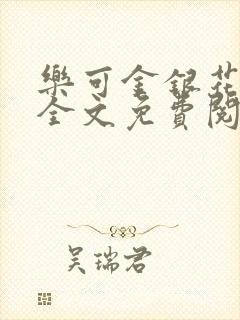 樂可金銀花
全文免費閱
吴瑞君